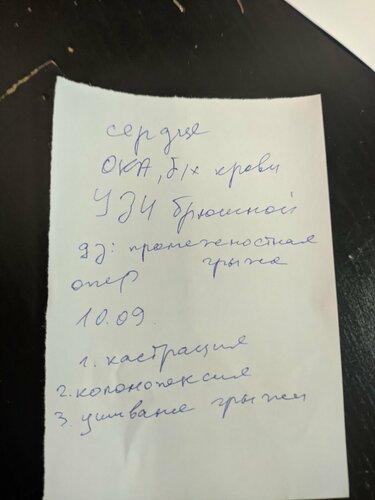 сердце
ОКА, б/х крови
УЗИ брюшной
ДЗ: промежностная
грыжа
опер
10.09.
1. кастрация
2. колонопексия
3. ушивание грыжи